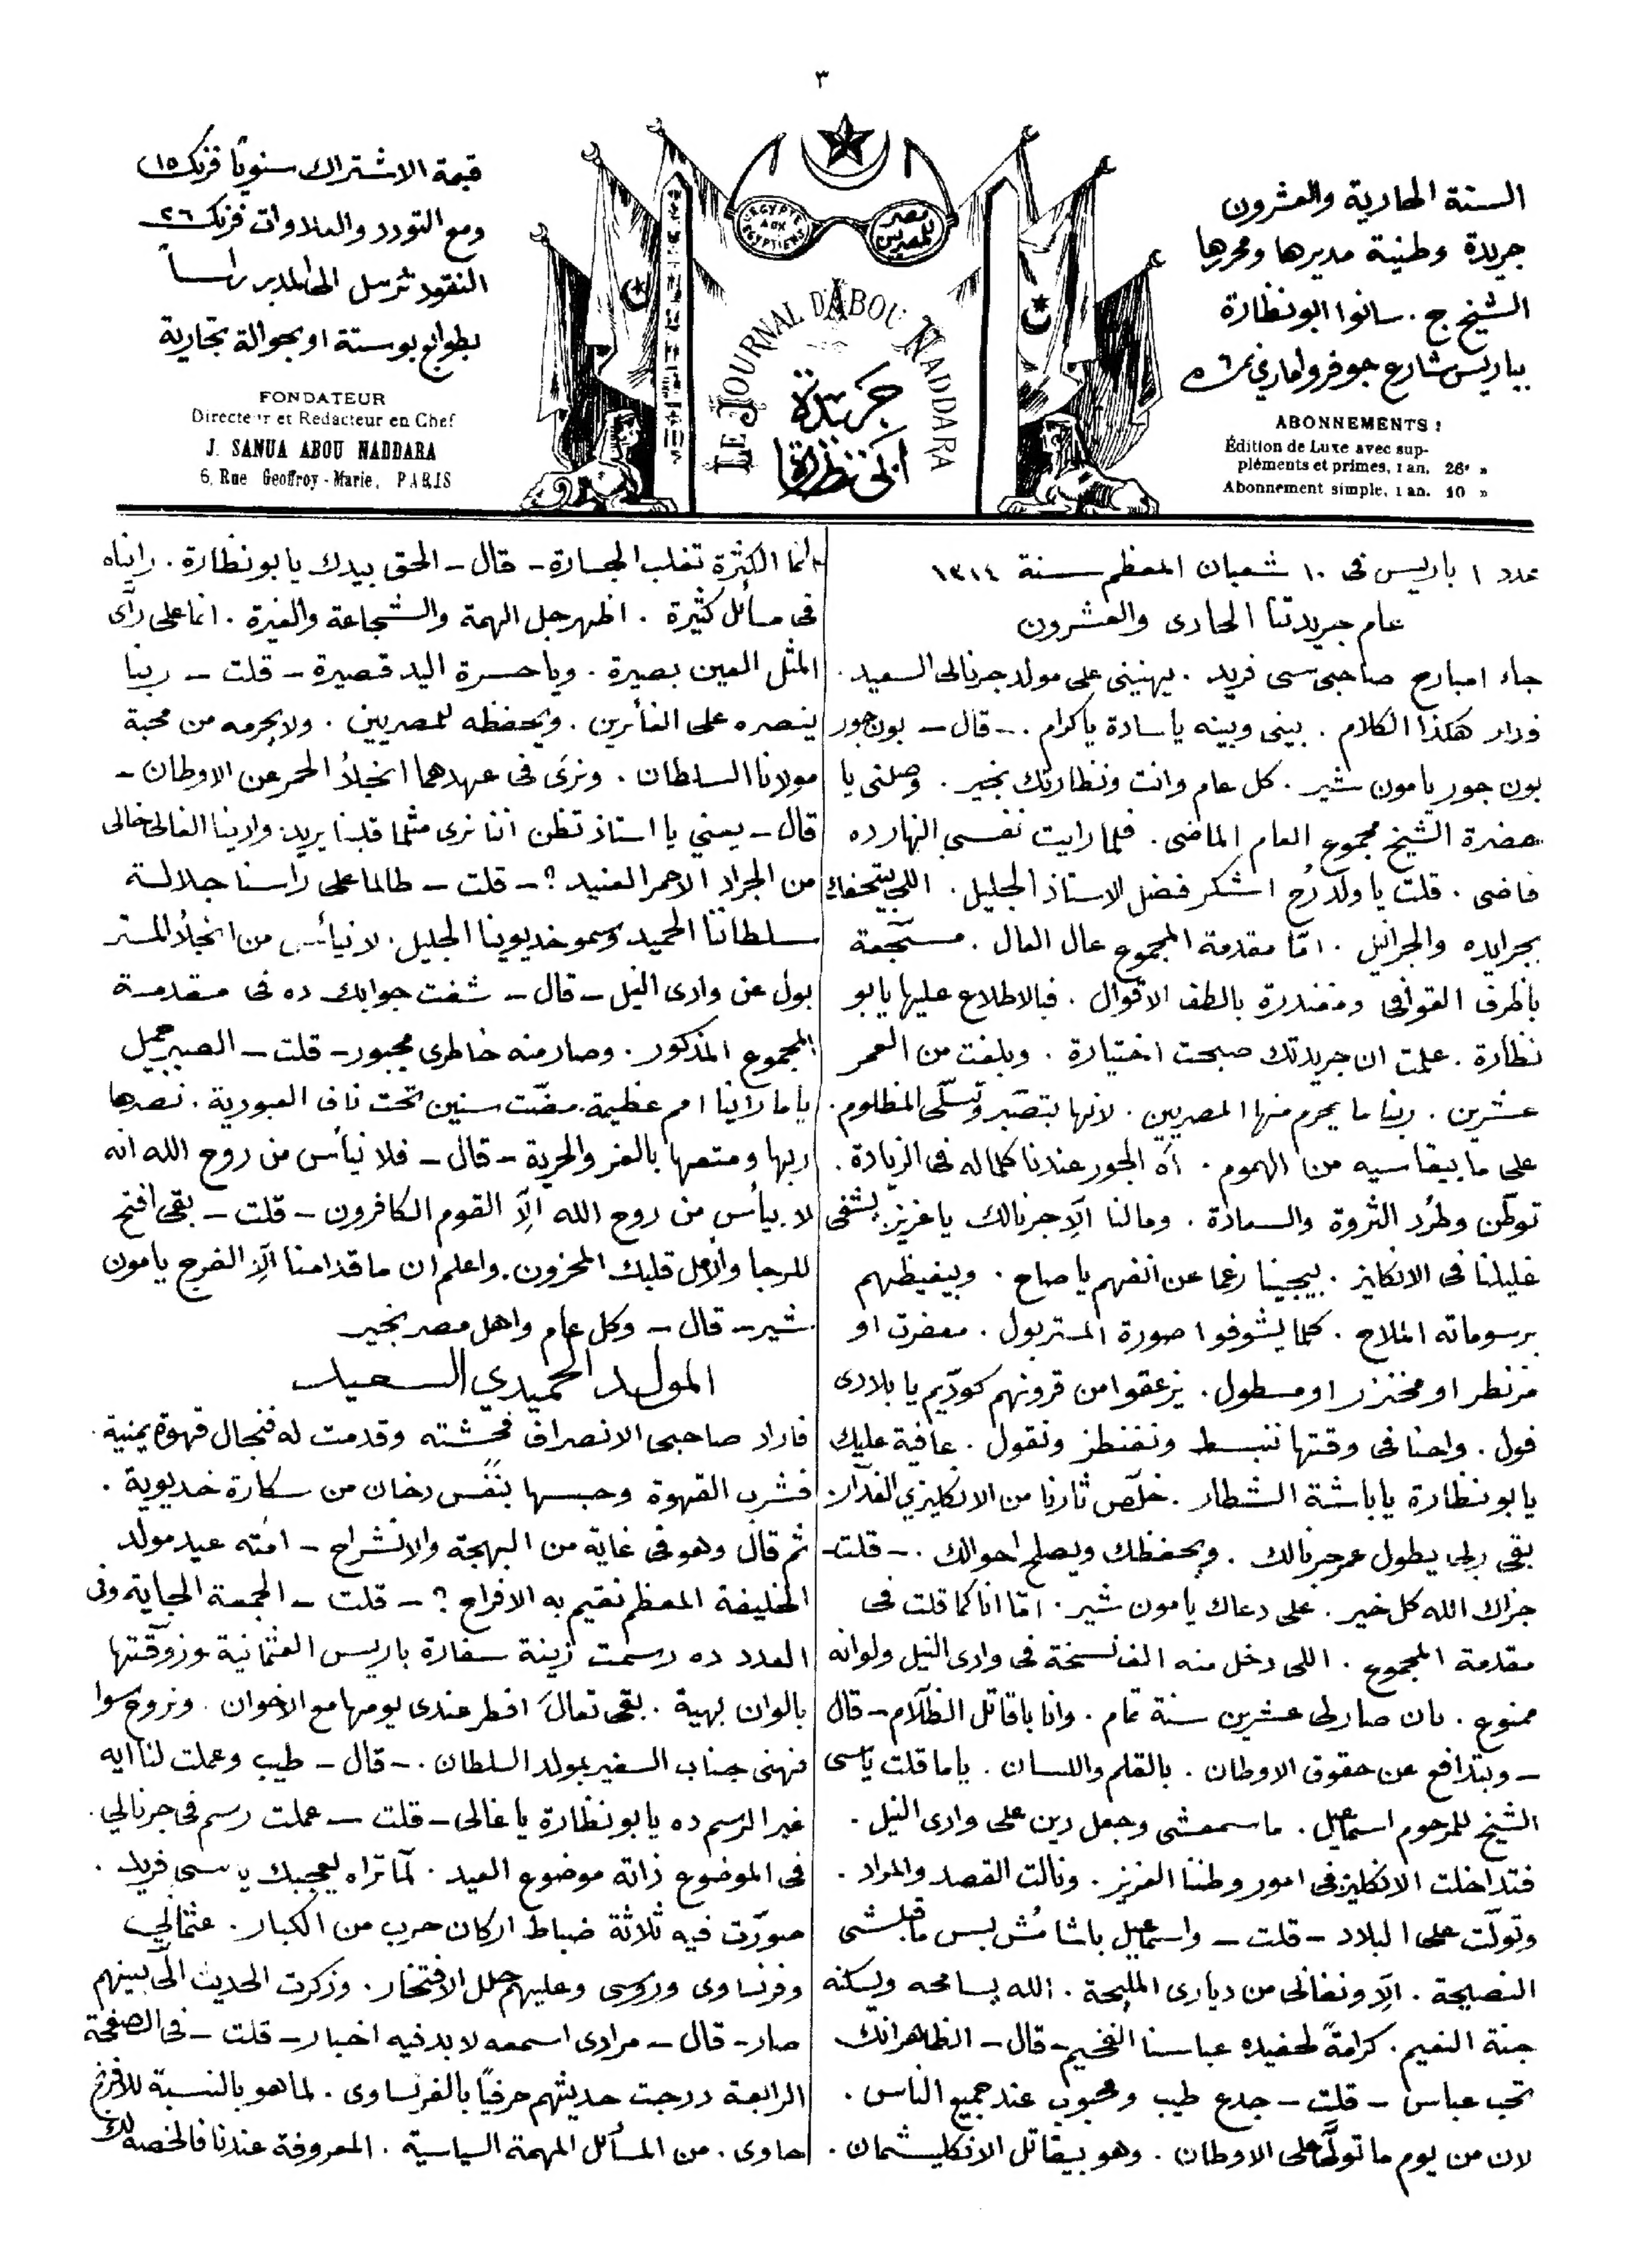 ٣
السنة الحادية والعشرون
جريدة وطنية مديرها ومحررها
الشيخ ج. سانوا ابو نظارة
بباريس شارع جوفروا ماري نمرة ٦
ABONNEMENTS :
Édition de Luxe avec sup-
pléments et primes, 1 an. 26f »
Abonnement simple, 1 an. 10 »
L'EGYPTE AUX EGYPTIENS
مصر للمصريين
LE JOURNAL D'ABOU NADDARA
جريدة
ابي نظارة
قيمة الاشتراك سنوياً فرنك ١٥
ومع التودد والعلاوات فرنك ٢٦
النقود ترسل الى المدير راساً
بطوابع بوستة او بحوالة تجارية
FONDATEUR
Directeur et Redacteur en Chef
J. SANUA ABOU NADDARA
6, Rue Geoffroy-Marie, PARIS
عدد ١ باريس فى ١٠ شعبان المعظم سنة ١٣١٤
عام جريدتنا الحادى والعشرون
جاء امبارح صاحبى سى فريد . يهنينى على مولد جرنالى السعيد .
ودار هكذا الكلام . بينى وبينه ياسادة ياكرام . - قال - بون جور
بون جور يا مون شير . كل عام وانت ونظارتك بخير . وصلنى يا
حضرة الشيخ مجموع العام الماضى . فلما رايت نفسى النهارده
فاضى . قلت يا ولد رُح اشكر فضل الاستاذ الجليل . اللى يتحفك
بجرايده والجرانيل . امّا مقدمة المجموع عال العال . مسجّعة
باظرف القوافى ومغندرة بالطف الاقوال . فبالاطلاع عليها يابو
نظارة . علمت ان جريدتك صبحت اختيارة . وبلغت من العمر
عشرين . ربنا ما يحرم منها المصريين . لانها بتصبّر وتسلّى المظلوم .
على ما بيقاسيه من الهموم . آه الجور عندنا كلماله فى الزيادة .
توطّن وطرد الثروة والسعادة . ومالنا الّا جرنالك ياعزيز . يشفى
غليلنا فى الانكليز . بيجينا رغما عن انفهم ياصاح . وبيغيظهم
برسوماته الملاح . كلما يشوفوا صورة المستر بول . معفرت او
مزنطر او مخنزر او مسطول . يزعقوا من قرونهم كودّيم يا بلادى
فول . واحنا فى وقتها ننبسط ونغنطز ونقول . عافية عليك
يابو نظارة ياباشة الشطار . خلّص ثارنا من الانكليزى الغدّار .
بقى ربى يطول عمر جرنالك . ويحفظك ويصلح احوالك . - قلت -
جزاك الله كل خير . على دعاك يامون شير . امّا انا كما قلت فى
مقدمة المجموع . اللى دخل منه الف نسخة فى وادى النيل ولو انه
ممنوع . بان صار لى عشرين سنة تمام . وانا باقاتل الظلّام - قال
- وبتدافع عن حقوق الاوطان . بالقلم واللسان . ياما قلت ياسى
الشيخ للمرحوم اسماعيل . ما سمعشى وجعل دين على وادى النيل .
فتداخلت الانكليز فى امور وطننا العزيز . ونالت القصد والمراد .
وتولّت على البلاد - قلت - واسماعيل باشا مُش بس ما قبلشى
النصيحة . الّا ونفانى من ديارى المليحة . الله يسامحه ويسكنه
جنة النعيم . كرامةً لحفيده عباسنا الفخيم - قال - الظاهر انك
تحب عباس - قلت - جدع طيب ومحبوب عند جميع الناس .
لان من يوم ما تولّى على الاوطان . وهو بيقاتل الانكليشمان .
انما الكثرة تغلب الجسارة - قال - الحق بيدك يابو نظارة . رايناه
فى مسائل كثيرة . اظهر جل الهمة والشجاعة والغيرة . انما على رأى
المثل العين بصيرة . وياحسرة اليد قصيرة - قلت - ربنا
ينصره على الغائرين . ويحفظه للمصريين . ولا يحرمه من محبة
مولانا السلطان . ونرى فى عهدهما انجلاءُ الحمر عن الاوطان -
قال - يعني يا استاذ تظن اننا نرى مثلما قلبنا يريد . وادينا الغالى خالى
من الجراد الاحمر العنيد ؟ - قلت - طالما على راسنا جلالة
سلطاننا الحميد وسمو خديوينا الجليل . لا نيأس من انجلاء المستر
بول عن وادى النيل - قال - شفت جوابك ده فى مقدمة
المجموع المذكور . وصار منه خاطرى مجبور - قلت - الصبر جميل
ياما راينا امم عظيمة . مضّت سنين تحت ناف العبودية . نصرها
ربها ومتعها بالعز والحرية - قال - فلا نيأس من روح الله انه
لا ييأس من روح الله الّا القوم الكافرون - قلت - بقى افتح
للرجا والامل قلبك المحزون . واعلم ان ما قدامنا الّا الفرج يامون
شير - قال - وكل عام واهل مصر بخير
المولد الحميدي السعيد
فاراد صاحبى الانصراف فحُشته وقدمت له فنجال قهوة يمنية .
فشرب القهوة وحبسها بنَفَس دخان من سكارة خديوية .
ثم قال وهو فى غاية من البهجة والانشراح - امته عيد مولد
الخليفة المعظم نقيم به الافراح ؟ - قلت - الجمعة الجاية وفى
العدد ده رسمت زينة سفارة باريس العثمانية وزوّقتها
بالوان بهية . بقى تعال افطر عندى يومها مع الاخوان . ونروح سوا
نهنى جناب السفير بمولد السلطان . - قال - طيب وعملت لنا ايه
غير الرسم ده يابو نظارة ياغالى - قلت - عملت رسم فى جرنالي .
فى الموضوع ذاته موضوع العيد . لمّا تراه يعجبك ياسى فريد .
صوّرت فيه ثلاثة ضباط اركان حرب من الكبار . عثمانلي
وفرنساوى وروسى وعليهم حلل الافتخار . وذكرت الحديث الّى بينهم
صار - قال - مرادى اسمعه لابد فيه اخبار - قلت - فى الصفحة
الرابعة درجت حديثهم حرفياً بالفرنساوى . لما هو بالنسبة للافرنج
حاوى . من المسائل المهمة السياسية . المعروفة عندنا فالخصه لك